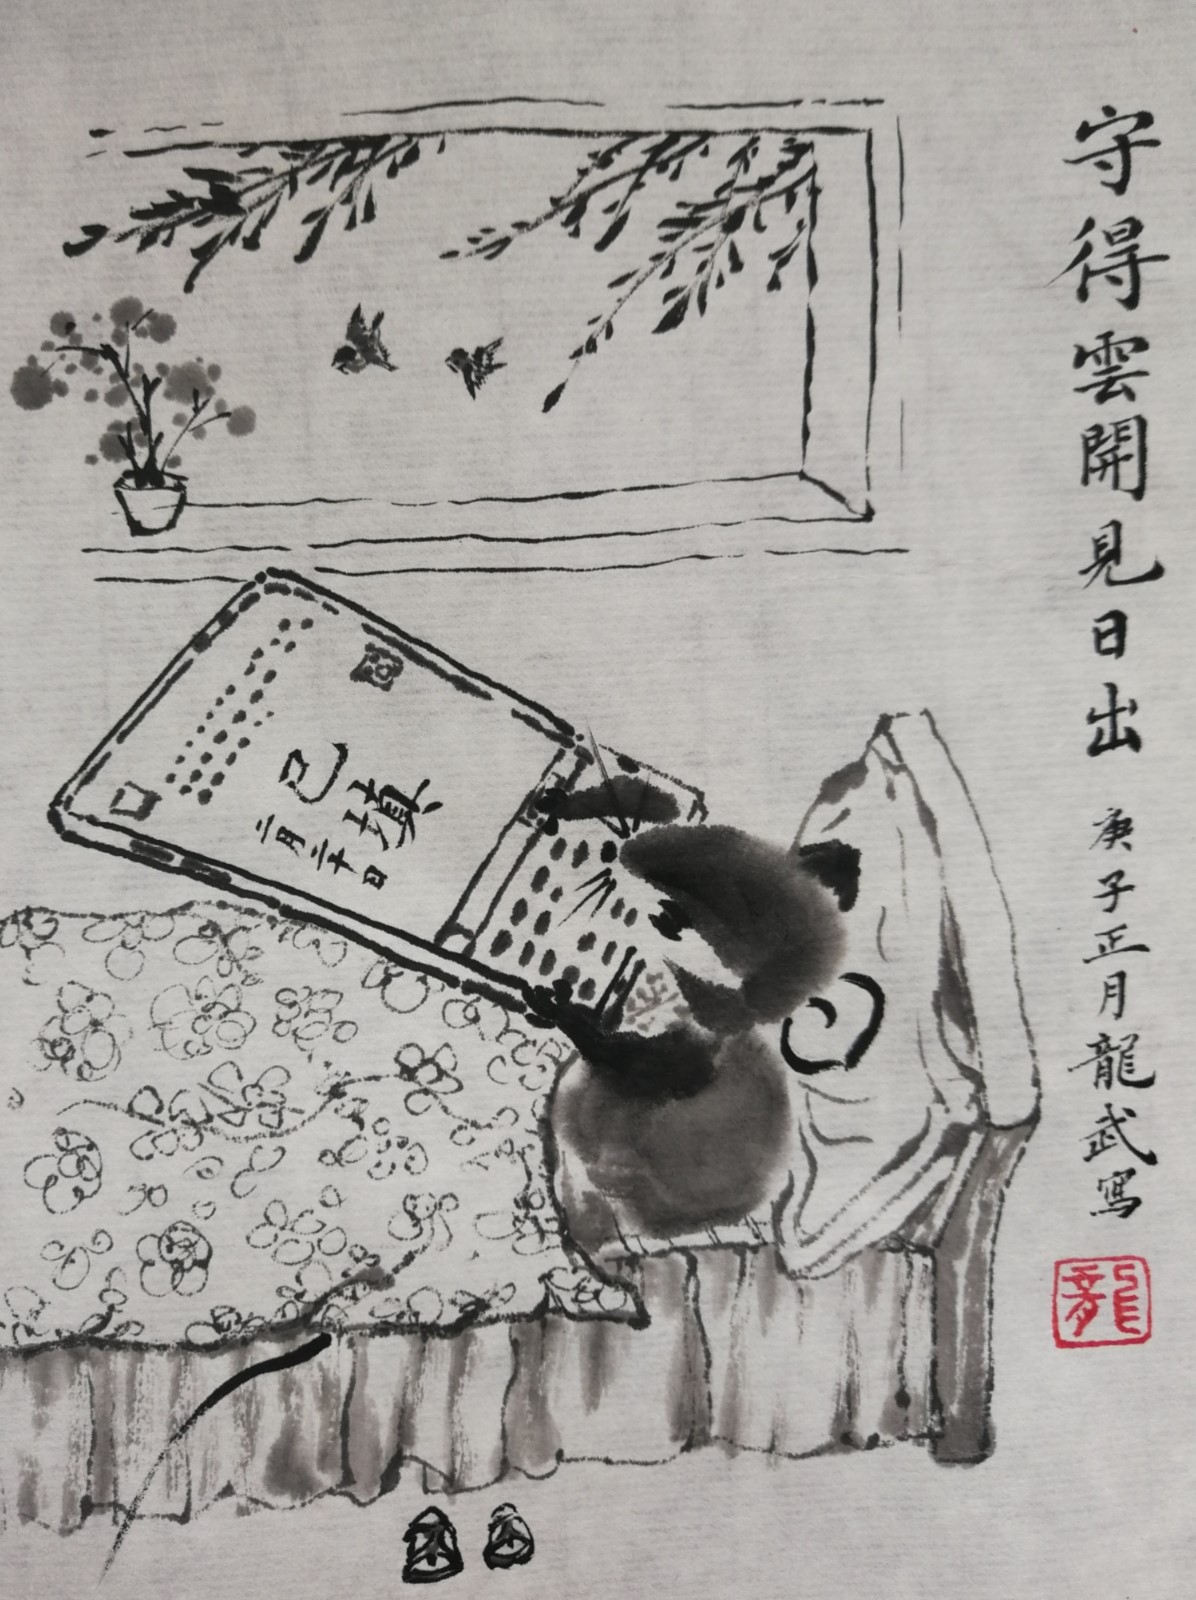 守得雲開見日出
庚子正月龍武寫
龍
已填
二月二十日